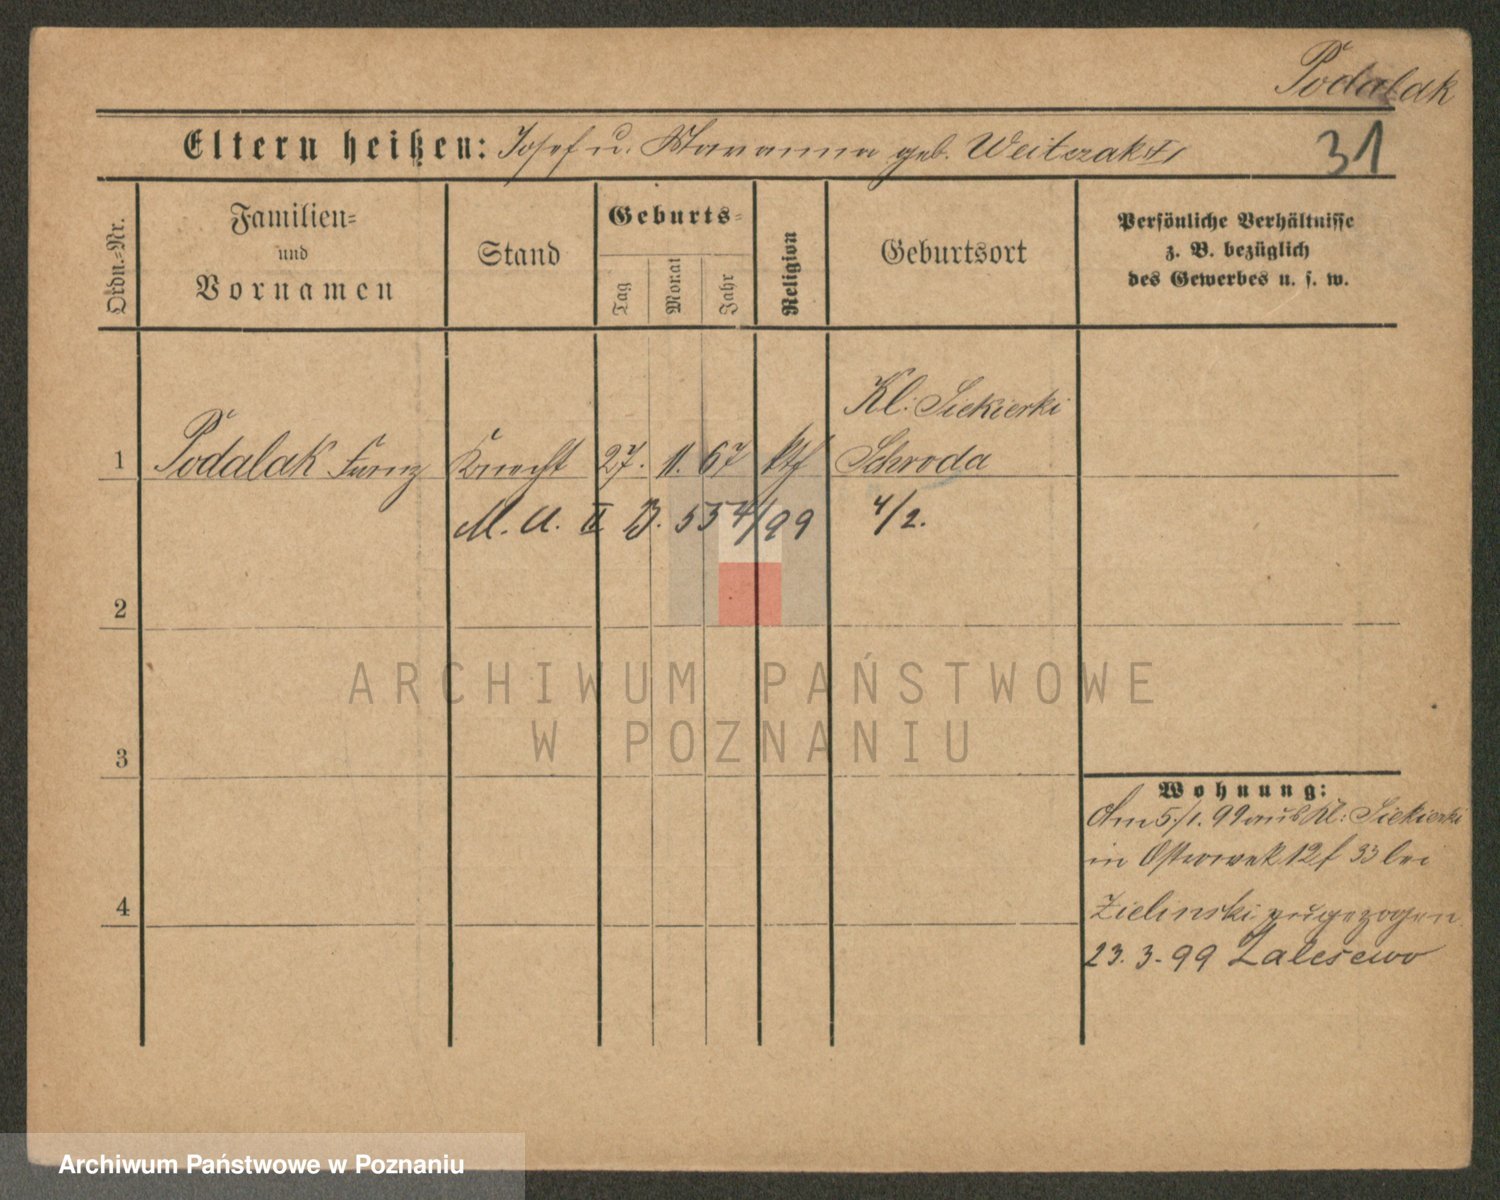 Podalak
Eltern heißen: Josef u. Maranna geb. Weitzak
31
Ordn.-Nr.
Familien-
und
Vornamen
Stand
Geburts-
Tag
Monat
Jahr
Religion
Geburtsort
Persönliche Verhältnisse
z. B. bezüglich
des Gewerbes u. s. w.
Kl: Siekierki
1 Podalak Franz Knecht 27. 11. 67 kth Schroda
M. A. II B. 554/99 4/2.
2
ARCHIWUM PAŃSTWOWE
W POZNANIU
3
Wohnung:
Am 5/1. 99 aus Kl: Siekierki
in Ostrowek 12 33 bei
4
Zielinski zugezogen
23. 3. 99 Zalesewo
Archiwum Państwowe w Poznaniu